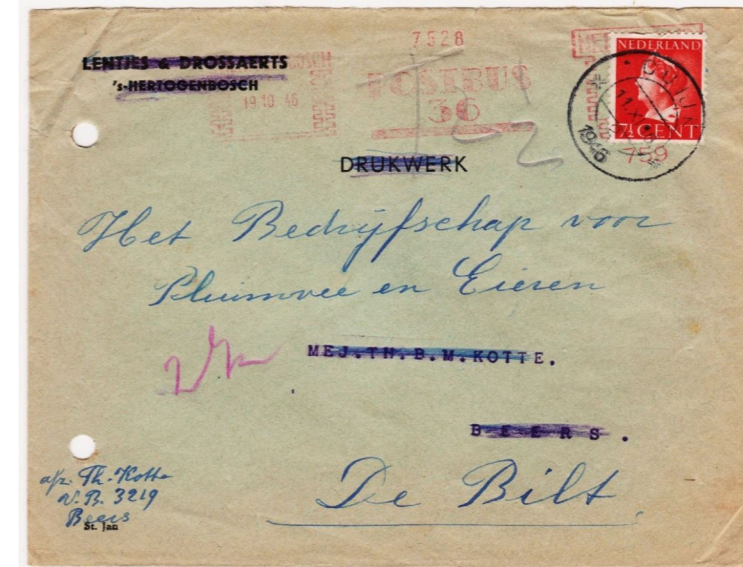 LENTJES & DROSSAERTS
's-HERTOGENBOSCH
19 10 46
7528
POSTBUS
36
NEDERLAND
7½ CENT
CUIJK
1946
759
DRUKWERK
Het Bedrijfschap voor
Pluimvee en Eieren
MEJ.TH.B.M.KOTTE.
BEERS.
De Bilt
afz. Th. Kotte
N.B. 3219
Beers
St. Jan